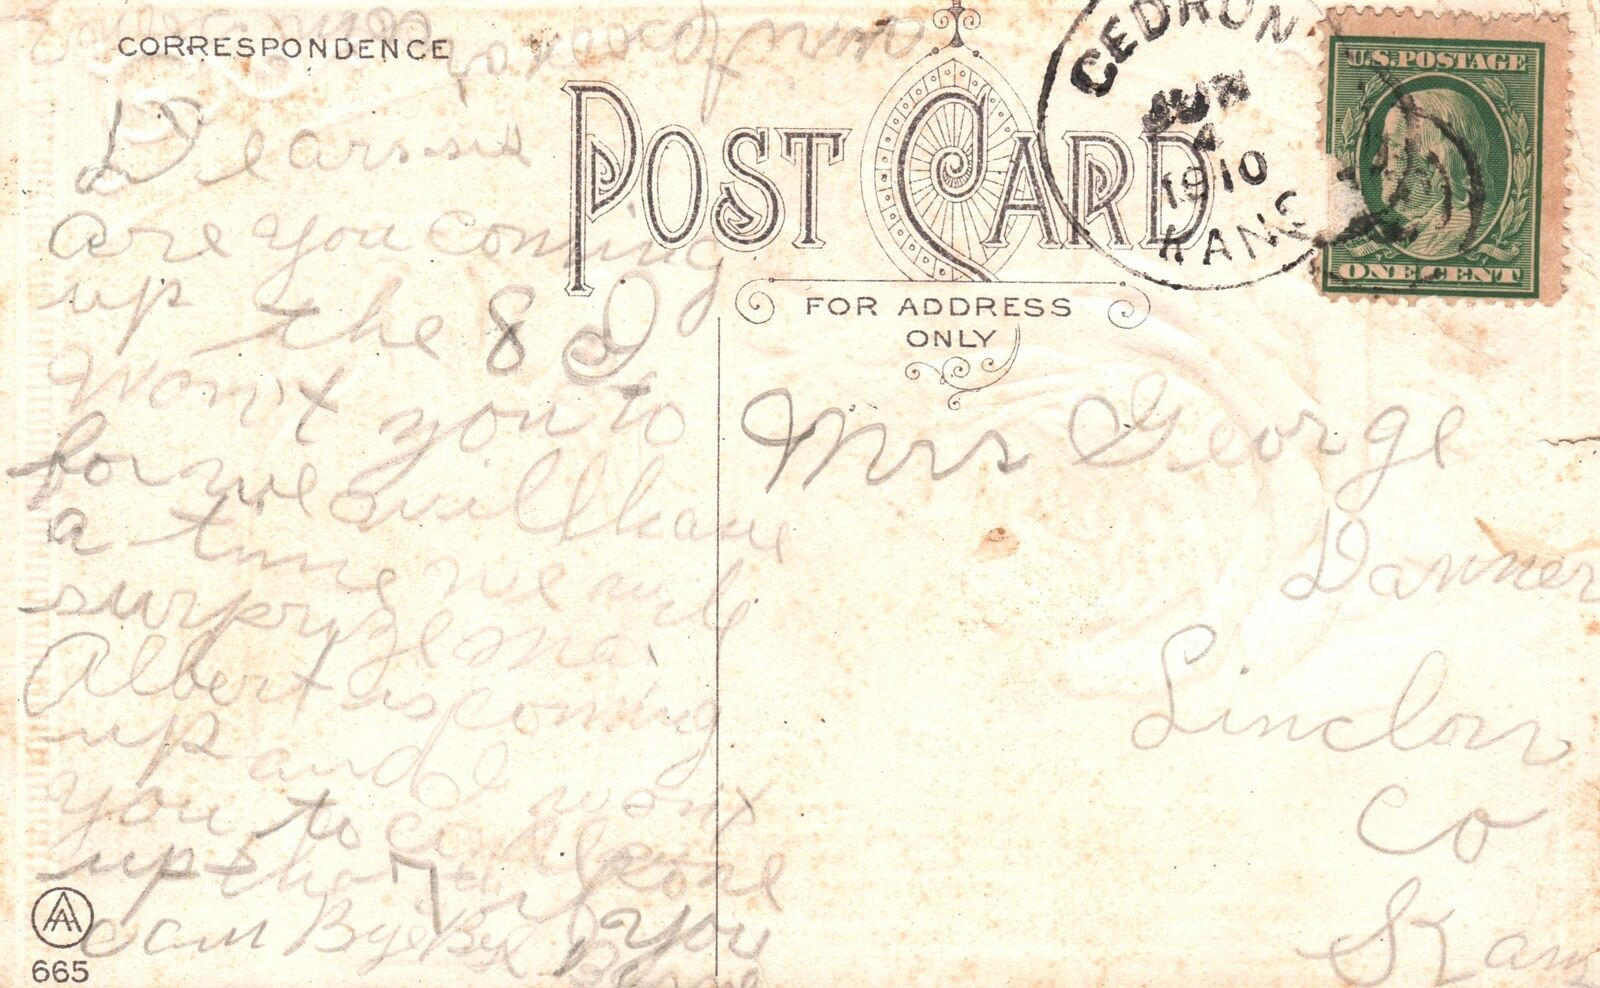 CORRESPONDENCE
POST CARD
FOR ADDRESS
ONLY
CEDRON
JUN
4
1910
KANS
U.S. POSTAGE
ONE CENT
Dear sis
are you coming
up the 8
wont you to
for we will have
a time we will
surprize ma
Albert is coming
up and I wont
you to come
up the 7 if you
can Bye Bye
Mrs George
Danner
Linclon
Co
Kans
AA
665